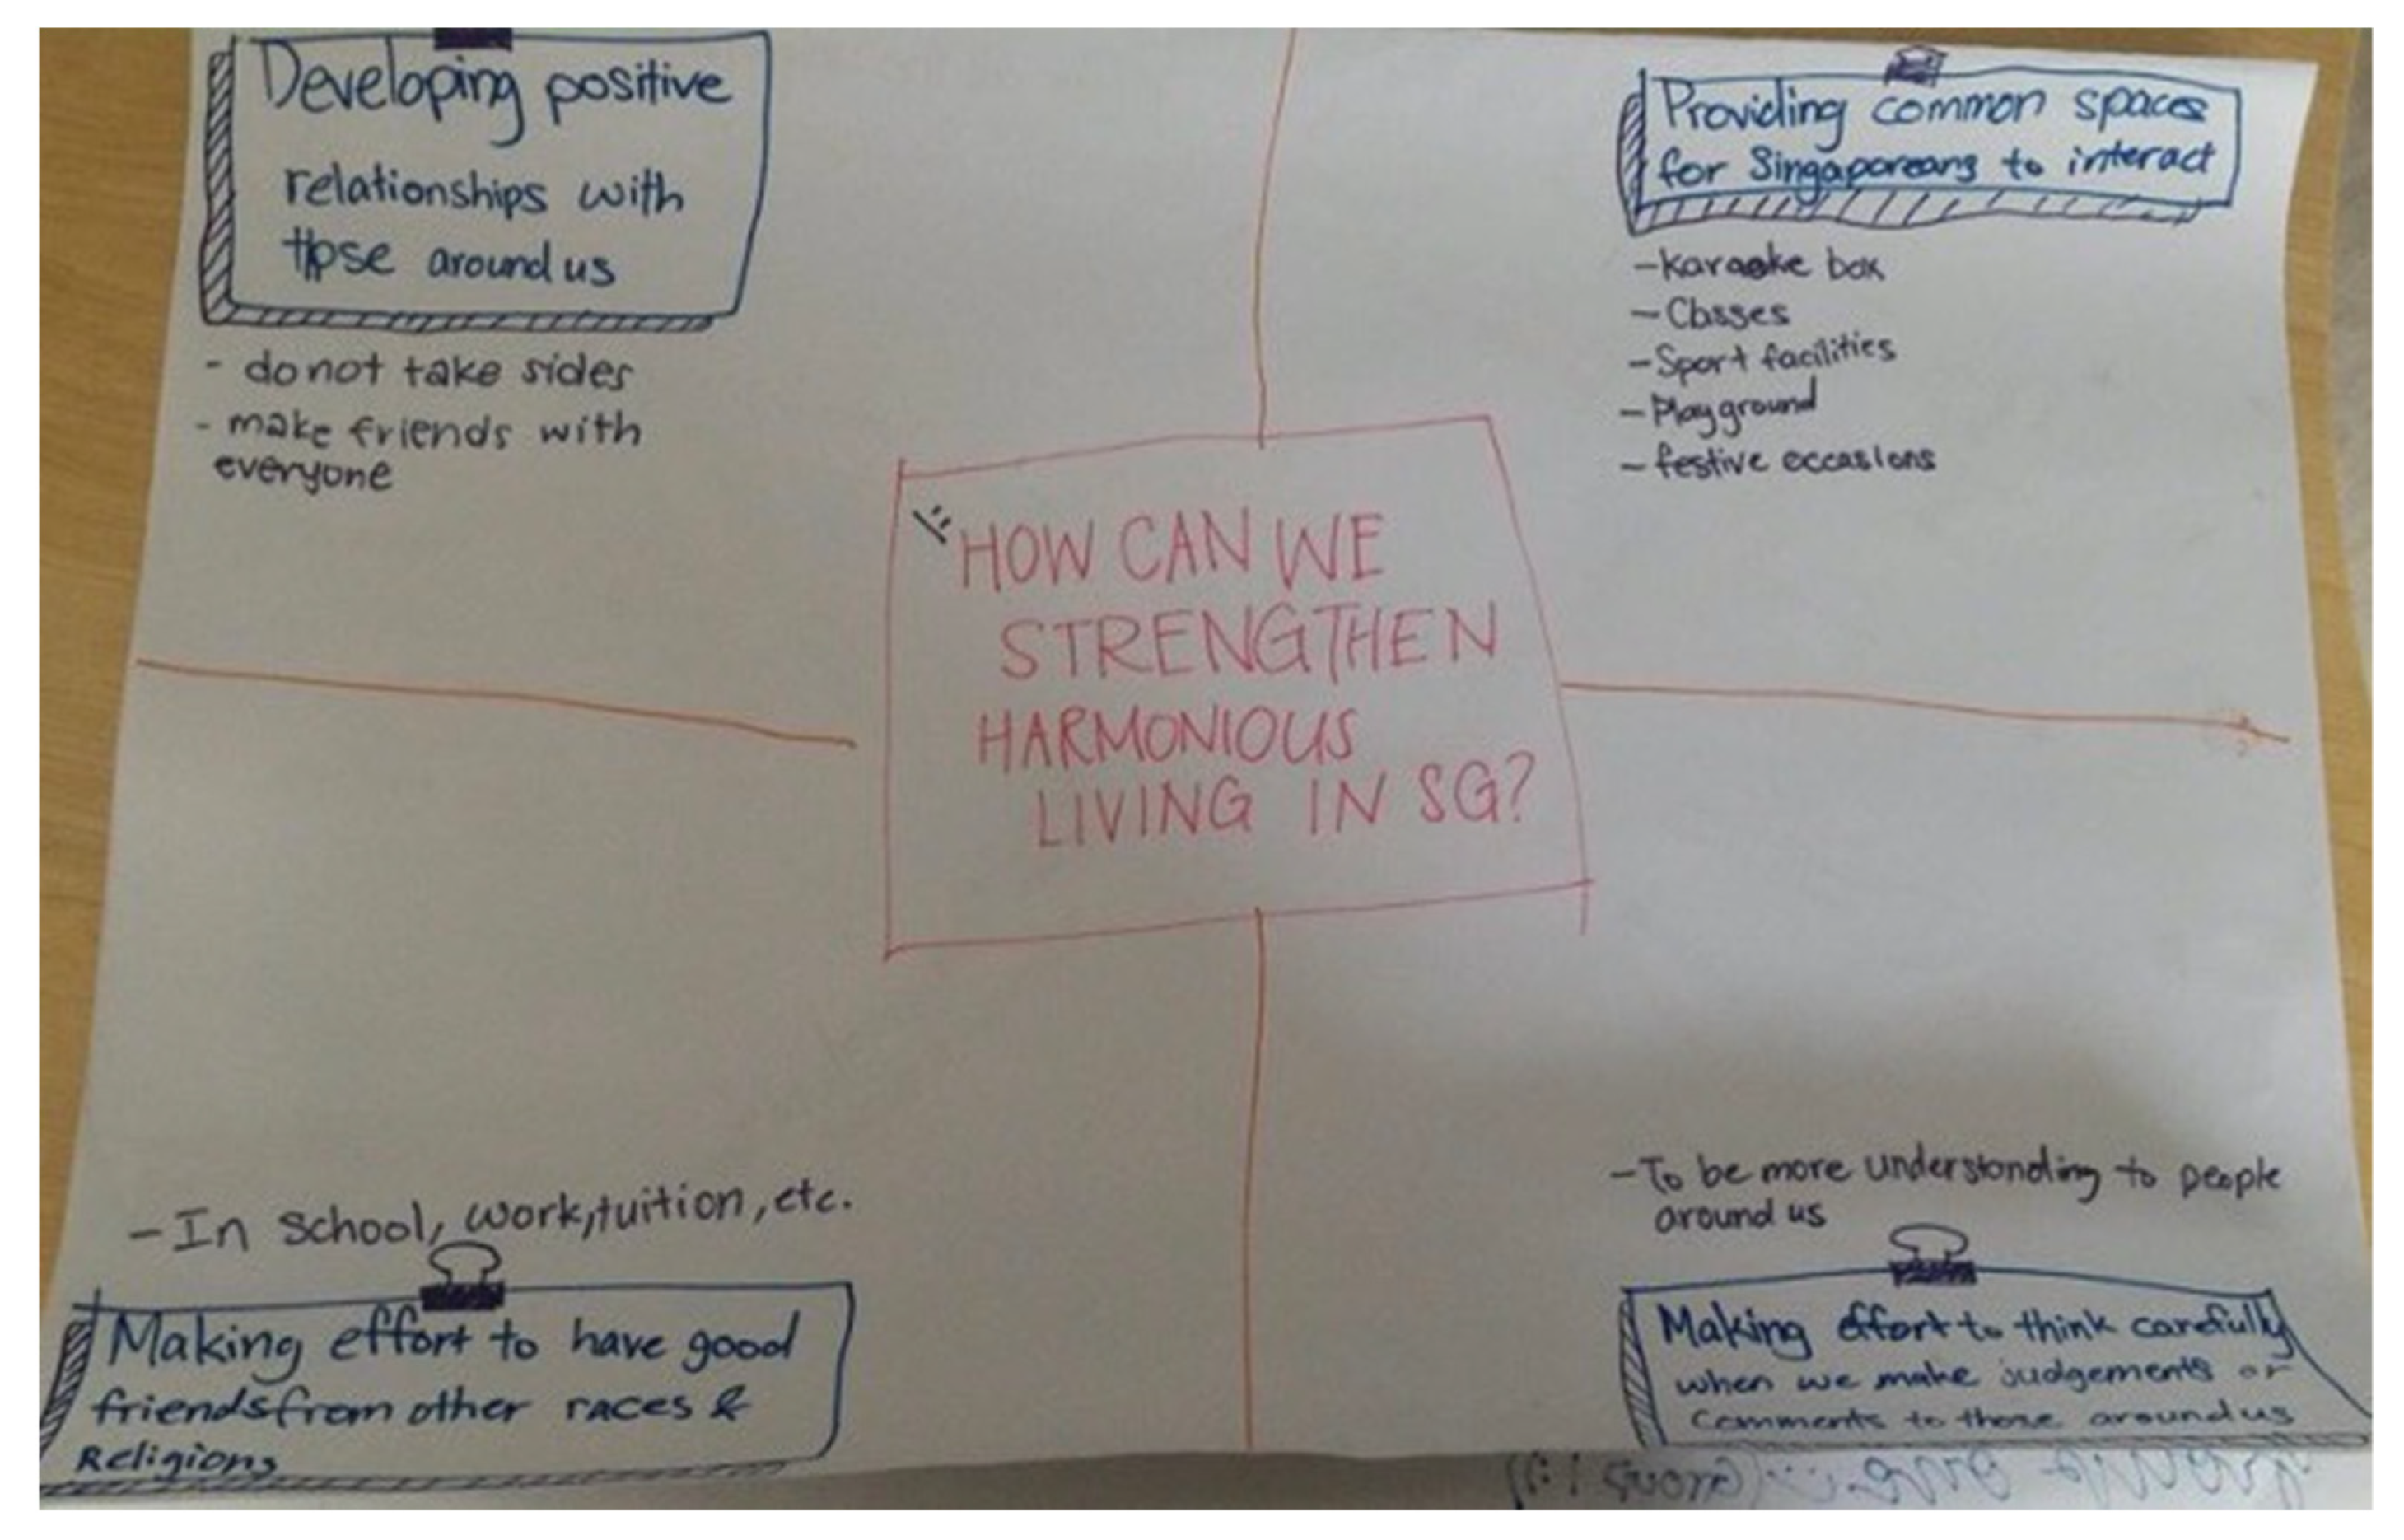 Developing positive
relationships with
those around us
- do not take sides
- make friends with
everyone
Providing common spaces
for Singaporeans to interact
- Karaoke box
- Classes
- Sport facilities
- Playground
- festive occasions
HOW CAN WE
STRENGTHEN
HARMONIOUS
LIVING IN SG?
- In school, work, tuition, etc.
Making effort to have good
friends from other races &
Religions
- To be more understanding to people
around us
Making effort to think carefully
when we make judgements or
Comments to those around us